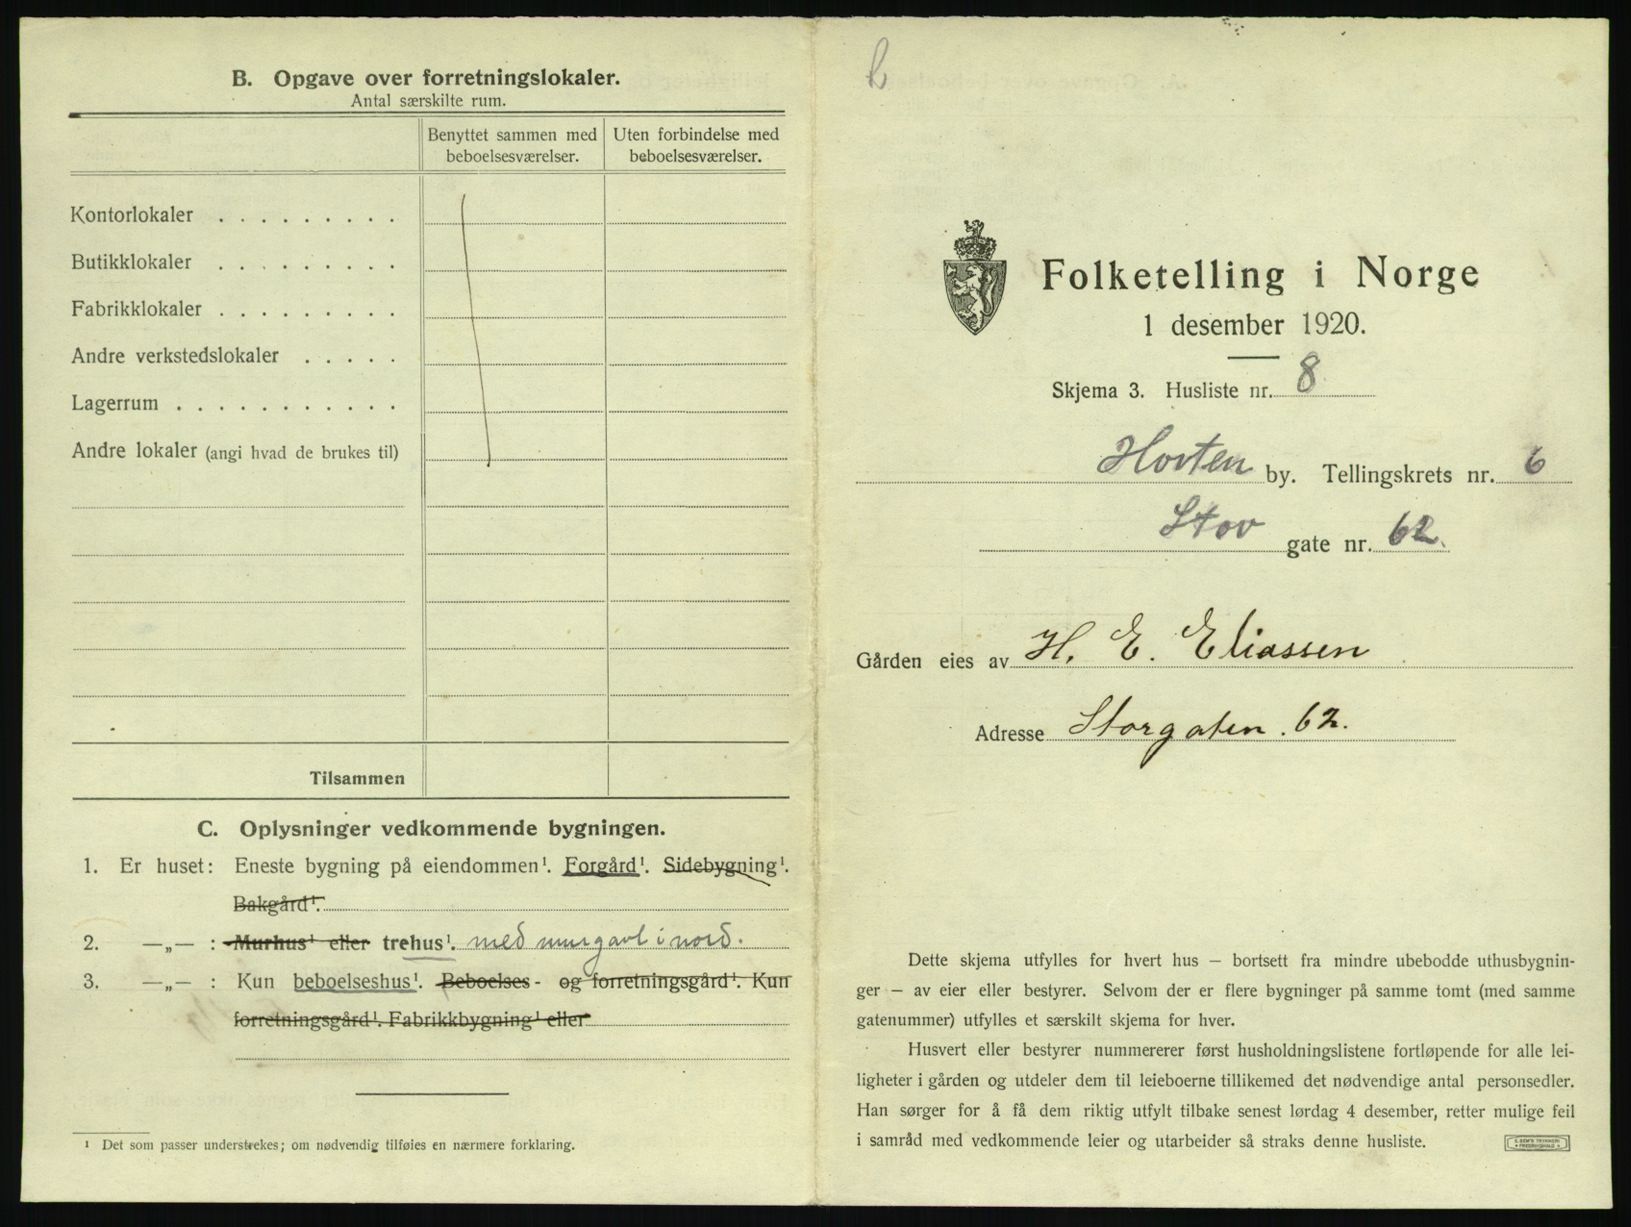 B. Opgave over forretningslokaler.
Antal særskilte rum.
Benyttet sammen med beboelsesværelser.
Uten forbindelse med beboelsesværelser.
Kontorlokaler . . . . . . . . .
Butikklokaler . . . . . . . . .
Fabrikklokaler . . . . . . . . .
Andre verkstedslokaler . . . . .
Lagerrum . . . . . . . . . . .
Andre lokaler (angi hvad de brukes til)
Tilsammen
C. Oplysninger vedkommende bygningen.
1. Er huset: Eneste bygning på eiendommen¹. Forgård¹. Sidebygning¹.
Bakgård¹.
2. —„— : Murhus¹ eller trehus¹. med murgavl i nord.
3. —„— : Kun beboelseshus¹. Beboelses- og forretningsgård¹. Kun
forretningsgård¹. Fabrikkbygning¹ eller
¹ Det som passer understrekes; om nødvendig tilføies en nærmere forklaring.
Folketelling i Norge
1 desember 1920.
Skjema 3. Husliste nr. 8
Horten by. Tellingskrets nr. 6
Stor gate nr. 62.
Gården eies av H. E. Eliassen
Adresse Storgaten. 62.
Dette skjema utfylles for hvert hus – bortsett fra mindre ubebodde uthusbygnin-
ger – av eier eller bestyrer. Selvom der er flere bygninger på samme tomt (med samme
gatenummer) utfylles et særskilt skjema for hver.
Husvert eller bestyrer nummererer først husholdningslistene fortløpende for alle lei-
ligheter i gården og utdeler dem til leieboerne tillikemed det nødvendige antal personsedler.
Han sørger for å få dem riktig utfylt tilbake senest lørdag 4 desember, retter mulige feil
i samråd med vedkommende leier og utarbeider så straks denne husliste.